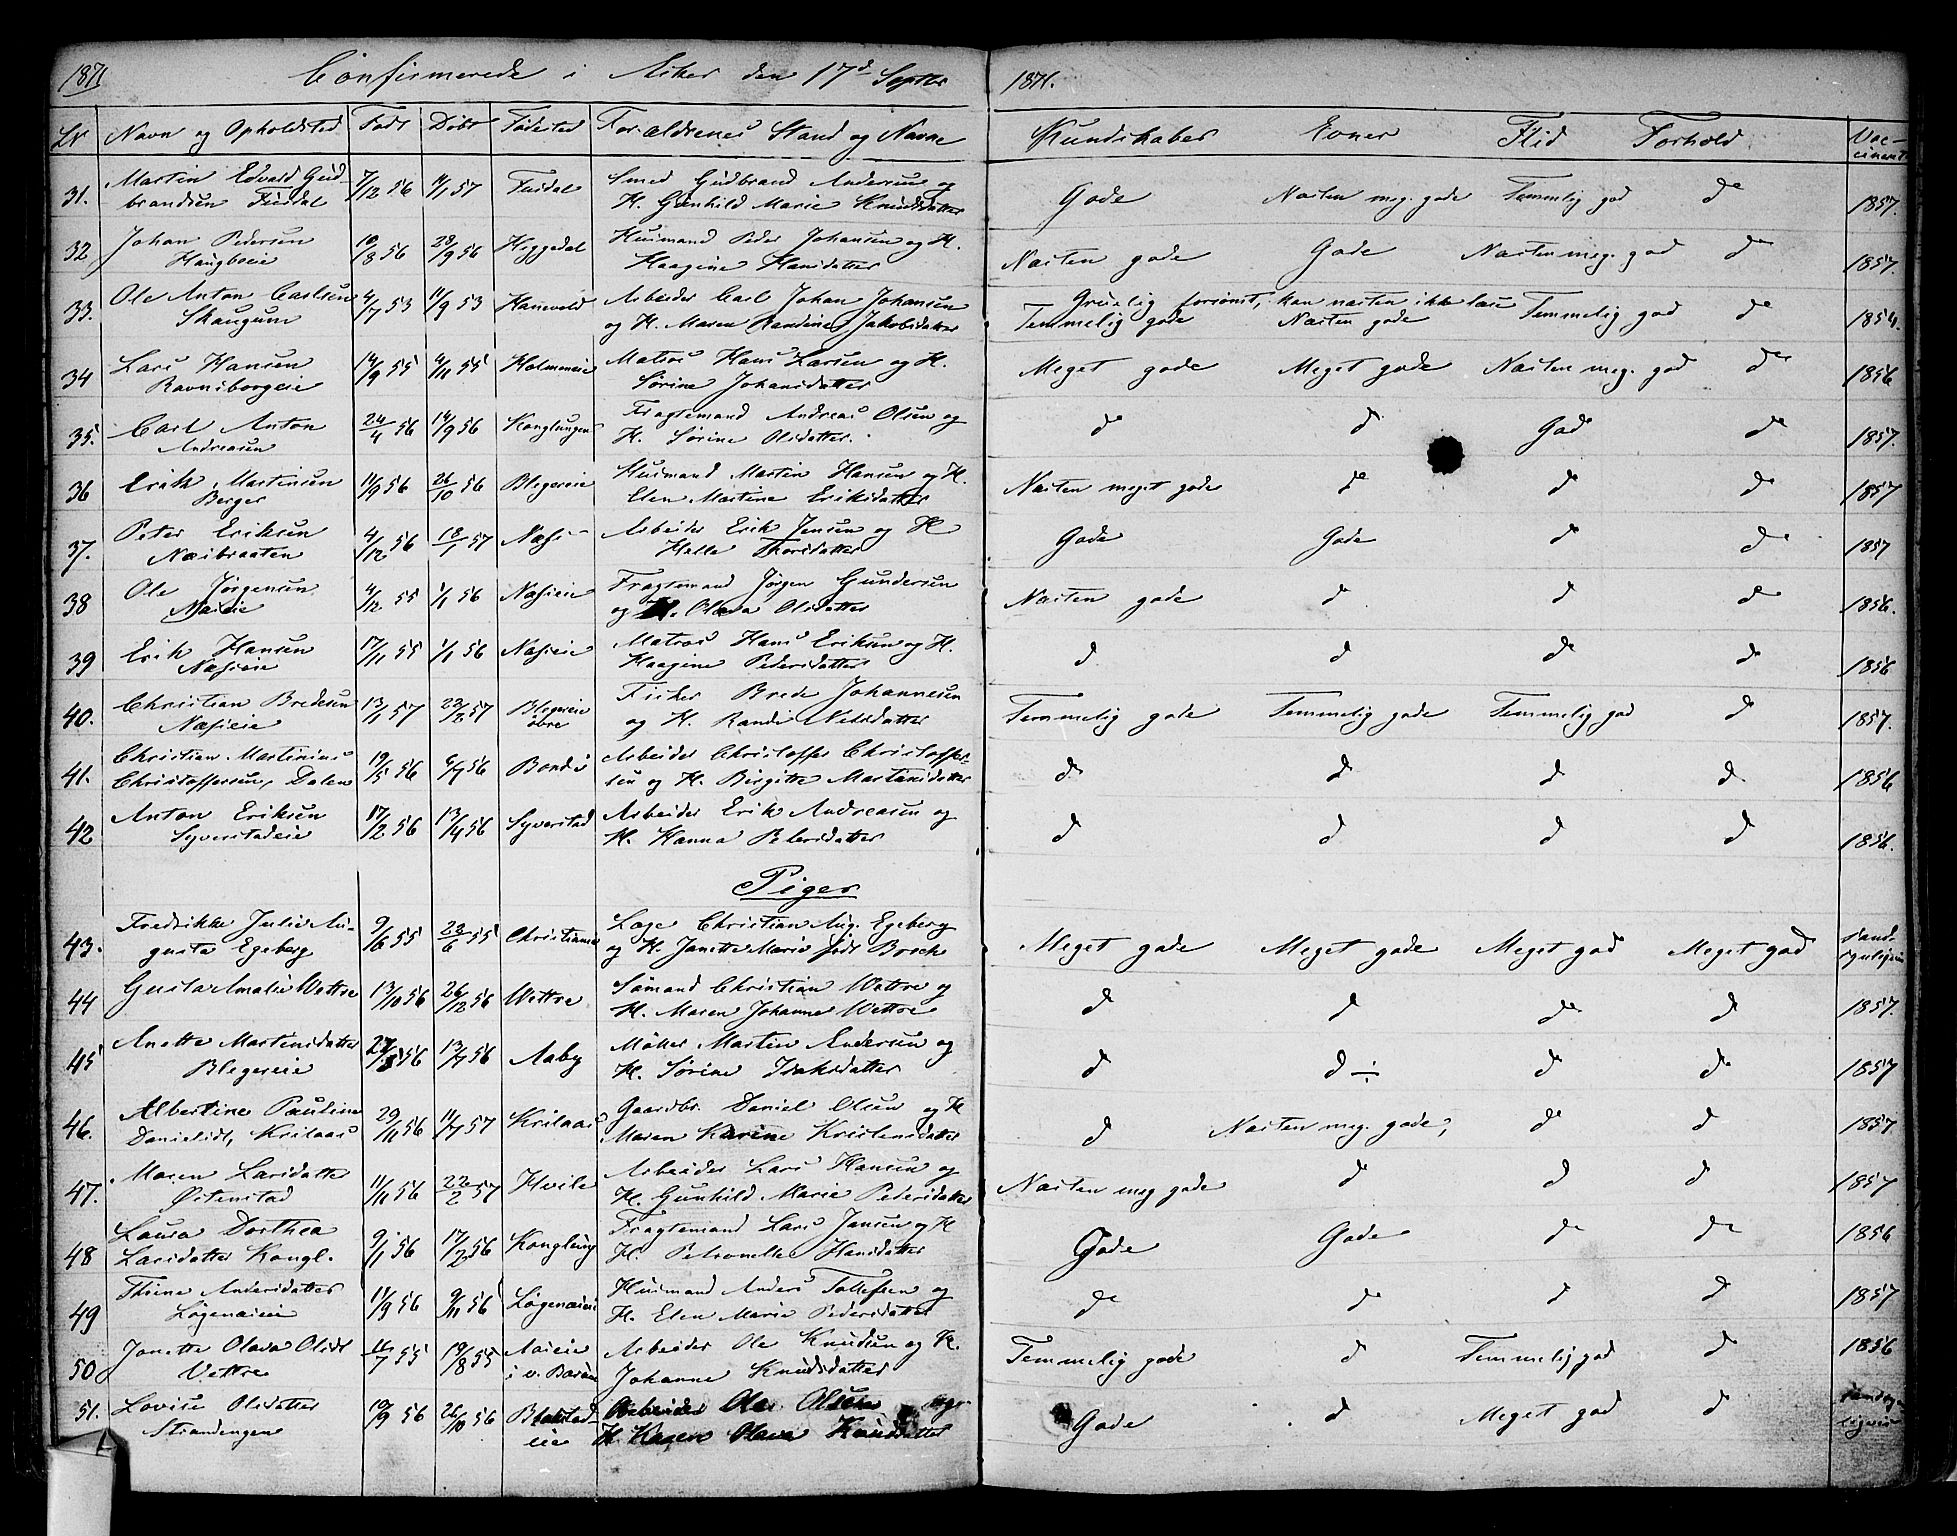 1871 Confirmerede i Asker den 17d Septbr 1871.
Lr Navn og Opholdsted Født Døbt Fødested Forældrenes Stand og Navne Kundskaber Evner Flid Forhold Vac-
cinerte
31. Martin Edvard Gud- 7/12 56 11/1 57 Fusdal Smed Gudbrand Andersen og Gode Næsten meg. gode Temmelig god do 1857.
brandsen Fusdal H. Gunhild Marie Knudsdatter
32 Johan Pedersen 10/8 56 28/9 56 Heggedal Husmand Peder Johansen og H. Næsten gode Gode Næsten meg. god do 1857.
Haugboeie Haagine Hansdatter
33. Ole Anton Carlsen 4/7 53 11/9 53 Hanevold Arbeider Carl Johan Johansen Gruelig forsømt, kan næsten ikke læse
Skaugum og H. Maren Randine Jakobsdatter Temmelig gode Næsten gode Temmelig god do 1854.
34 Lars Hansen 14/9 55 4/11 55 Holmeneie Matros Hans Larsen og H. Meget gode Meget gode Næsten meg. god do 1856
Ravnsborgeie Sørine Johansdatter
35. Carl Anton 24/4 56 14/9 56 Konglungen Fragtemand Andreas Olsen og do do God do 1857.
Andreasen H. Sørine Olsdatter.
36 Erik Martinsen 11/9 56 26/10 56 Blegereie Husmand Martin Hansen og H. Næsten meget gode do do do 1857
Berger Elen Martine Eriksdatter
37. Peter Eriksen 4/12 56 18/1 57 Næs Arbeider Erik Jensen og H Gode Gode do do 1857
Næsbraaten Helle Thorsdatter
38 Ole Jørgensen 4/12 55 1/1 56 Næseie Fragtemand Jørgen Gundersen Næsten gode do do do 1856.
Næseie og H. Olava Olsdatter
39 Erik Hansen 17/11 55 1/1 56 Næseie Matros Hans Eriksen og H. do do do do 1856
Næseie Haagine Pedersdatter
40. Christian Bredesen 13/1 57 22/2 57 Blegereie Fisker Brede Johannesen Temmelig gode Temmelig gode Temmelig god do 1857.
Næseie øvre og H. Randi Nilsdatter
41. Christian Martinius 19/5 56 6/7 56 Bondi Arbeider Christoffer Christoffer- do do do do 1856
Christoffersen, Dalen sen og H. Birgitte Martinsdatter
42 Anton Eriksen 17/2 56 13/4 56 Syverstad Arbeider Erik Andreasen og do do do do 1856.
Syverstadeie H. Hanna Petersdatter
Piger
43. Fredrikke Julie Au- 9/6 55 23/6 55 Christiania Læge Christian Aug. Egeberg Meget gode Meget gode Meget god Meget god sand-
gusta Egeberg og H. Janette Marie født Borch synligviis
44 Gusta Amalie Wettre 13/10 56 26/12 56 Wettre Sømand Christian Wettre og do do do do 1857.
H. Maren Johanne Wettre
45 Anette Martinsdatter 27/5 56 13/7 56 Aaby Møller Martin Andersen og do do ÷ do do 1857
Blegereie H. Sørine Isaksdatter
46. Albertine Pauline 29/11 56 11/7 57 Krilaas Gaardbr. Daniel Olsen og H do Næsten meg. gode, do do 1857
Danielsdt, Krilaas Maren Karine Kristensdatter
47. Maren Larsdatter 11/11 56 22/2 57 Hvile Arbeider Lars Hansen og Næsten meg gode do do do 1857
Østenstad H. Gunhild Marie Pedersdatter
48 Laura Dorthea 9/1 56 17/2 56 Konglung Fragtemand Lars Jansen og H Gode Gode do do 1856
Larsdatter Kongl. H. Petronelle Hansdatter
49 Thrine Andersdatter 11/9 56 9/11 56 Løgenæseie Husmand Anders Tollefsen og do do do do 1857
Løgenæseie H. Elen Marie Pedersdatter
50 Janette Olava Olsdt 16/7 55 19/8 55 Næseie Arbeider Ole Knudsen og H. Temmelig gode do Temmelig god do 1856
Vettre i v. Bærum Johanne Knudsdatter
51. Lovise Olsdatter 10/9 56 26/10 56 Blakstad- Arbeider Ole Olsen og Gode do Meget god do sandsyn-
Strandengen eie H. Karen Olava Knudsdatter ligviis